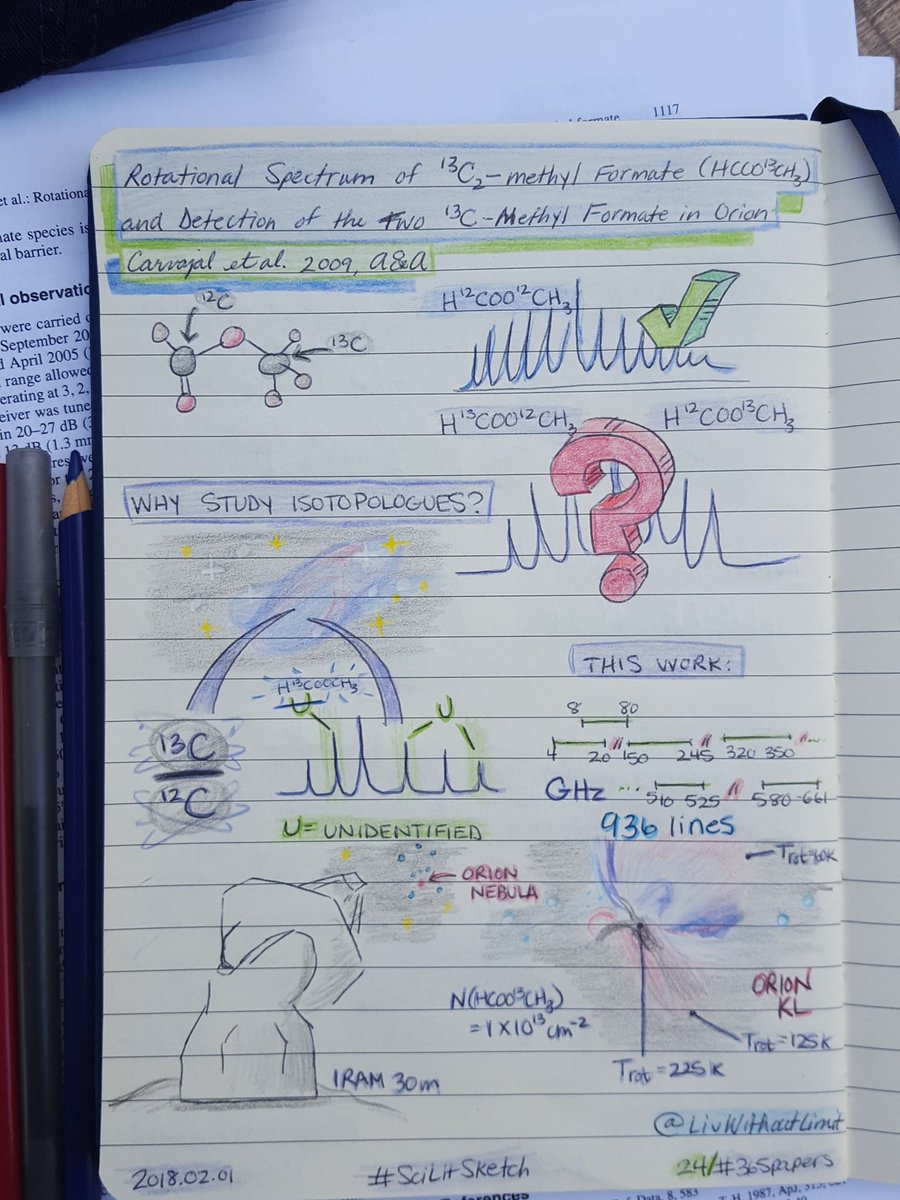 1117
et al.: Rotationa
ate species is
al barrier.
l observatio
were carried o
September 20
d April 2005 (
range allowed
erating at 3, 2,
eiver was tune
in 20–27 dB (3
(1.3 mm
Rotational Spectrum of ¹³C₂-methyl Formate (HCOO¹³CH₃)
and Detection of the Two ¹³C-Methyl Formate in Orion
Carvajal et al. 2009, A&A
¹²C
¹³C
H¹²COO¹²CH₃
H¹³COO¹²CH₃ H¹²COO¹³CH₃
WHY STUDY ISOTOPOLOGUES?
H¹³COOCH₃
U U
¹³C
¹²C
U = UNIDENTIFIED
THIS WORK:
8 80
4 20 150 245 320 350 ...
GHz ... 510 525 580 661
936 lines
ORION
NEBULA
IRAM 30m
Trot=80K
N(HCOO¹³CH₃)
= 1 X 10¹³ cm⁻²
ORION
KL
Trot = 125K
Trot = 225K
@LivWithoutLimit
2018.02.01 #SciLitSketch 24/#365papers
Data, 8, 583
T. H. 1987, ApJ,